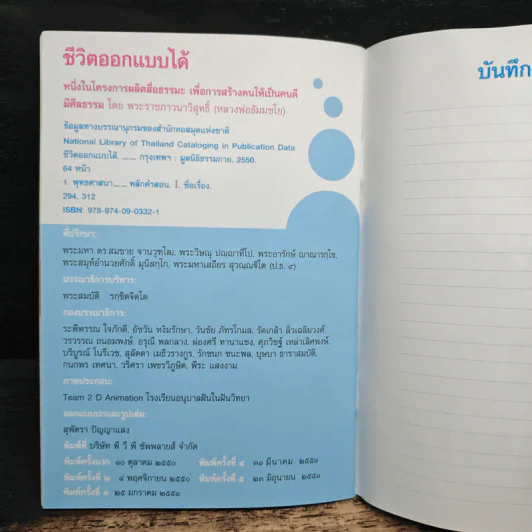 ชีวิตออกแบบได้
หนึ่งในโครงการผลิตสื่อธรรมะ เพื่อการสร้างคนให้เป็นคนดี
มีศีลธรรม โดย พระราชภาวนาวิสุทธิ์ (หลวงพ่อธัมมชโย)
ข้อมูลทางบรรณานุกรมของสำนักหอสมุดแห่งชาติ
National Library of Thailand Cataloging in Publication Data
ชีวิตออกแบบได้. __ กรุงเทพฯ : มูลนิธิธรรมกาย, 2550.
64 หน้า
1. พุทธศาสนา__ __ หลักคำสอน. I. ชื่อเรื่อง.
294, 312
ISBN: 978-974-09-0332-1
ที่ปรึกษา:
พระมหา ดร.สมชาย ฐานวุฑฺโฒ, พระวิษณุ ปญฺญาทีโป, พระอารักษ์ ญาณารกฺโข,
พระสมุห์อำนวยศักดิ์ มุนิสกฺโก, พระมหาเสถียร สุวณฺณฐิโต (ป.ธ. ๙)
บรรณาธิการบริหาร:
พระสมบัติ รกฺขิตจิตฺโต
กองบรรณาธิการ:
ระพีพรรณ ใจภักดี, อัชวัน หงิมรักษา, วันชัย ภัทรโกมล, รัดเกล้า ลิ่วเฉลิมวงศ์,
วรวรรณ ถนอมพงษ์, อรุณี พลกลาง, ผ่องศรี ทานาแซง, ศุภวิชฐ์ เหล่าเลิศพงษ์,
บริบูรณ์ โนรีเวช, สุลัดดา เมธีวรางกูร, รักชนก ชนะพล, บุษบา ธาราสมบัติ,
กนกพร เทศนา, วริศรา เพชรวิภูษิต, พีระ แสงงาม
ภาพประกอบ:
Team 2 D Animation โรงเรียนอนุบาลฝันในฝันวิทยา
ออกแบบปกและรูปเล่ม:
สุพัตรา ปัญญาแสง
พิมพ์ที่ บริษัท พี วี พี ซัพพลายส์ จำกัด
พิมพ์ครั้งแรก ๑๐ ตุลาคม ๒๕๕๐ พิมพ์ครั้งที่ ๔ ๓๐ มีนาคม ๒๕๕๑
พิมพ์ครั้งที่ ๒ ๔ พฤศจิกายน ๒๕๕๐ พิมพ์ครั้งที่ ๕ ๒๓ มิถุนายน ๒๕๕๑
พิมพ์ครั้งที่ ๓ ๒๕ มกราคม ๒๕๕๑
บันทึก